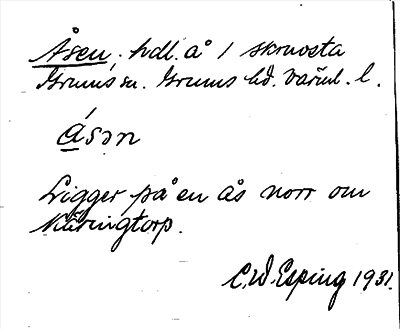 Åsen, hdl. å 1 skruvsta
Grums sn. Grums hd. Värml. l.
åsən
Ligger på en ås norr om
Näringtorp.
C.W. Esping 1931.